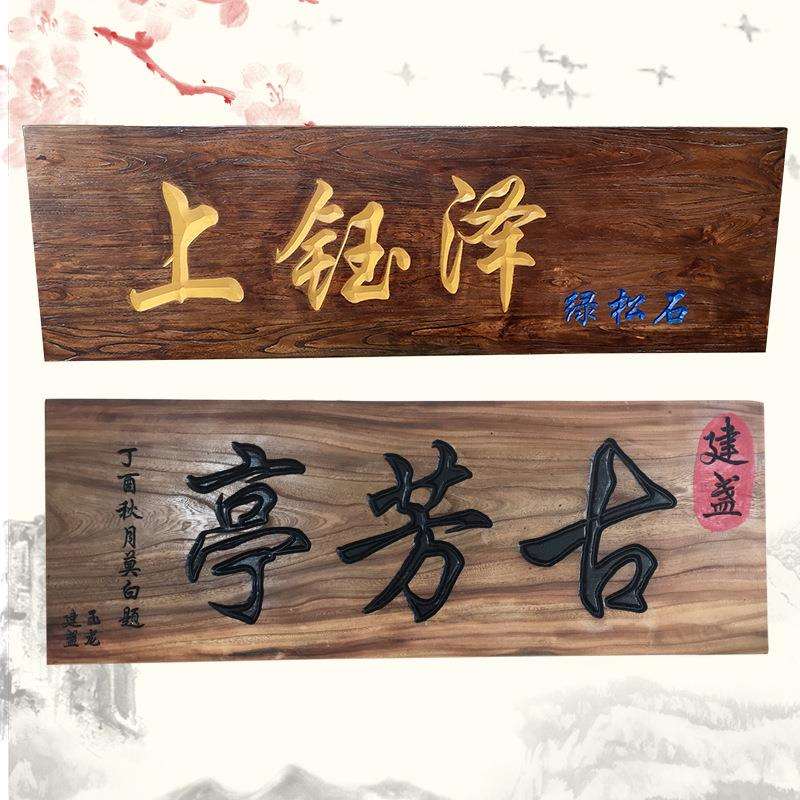 上钰泽
绿松石
建盏
古芳亭
丁酉秋月莫白题
建盏